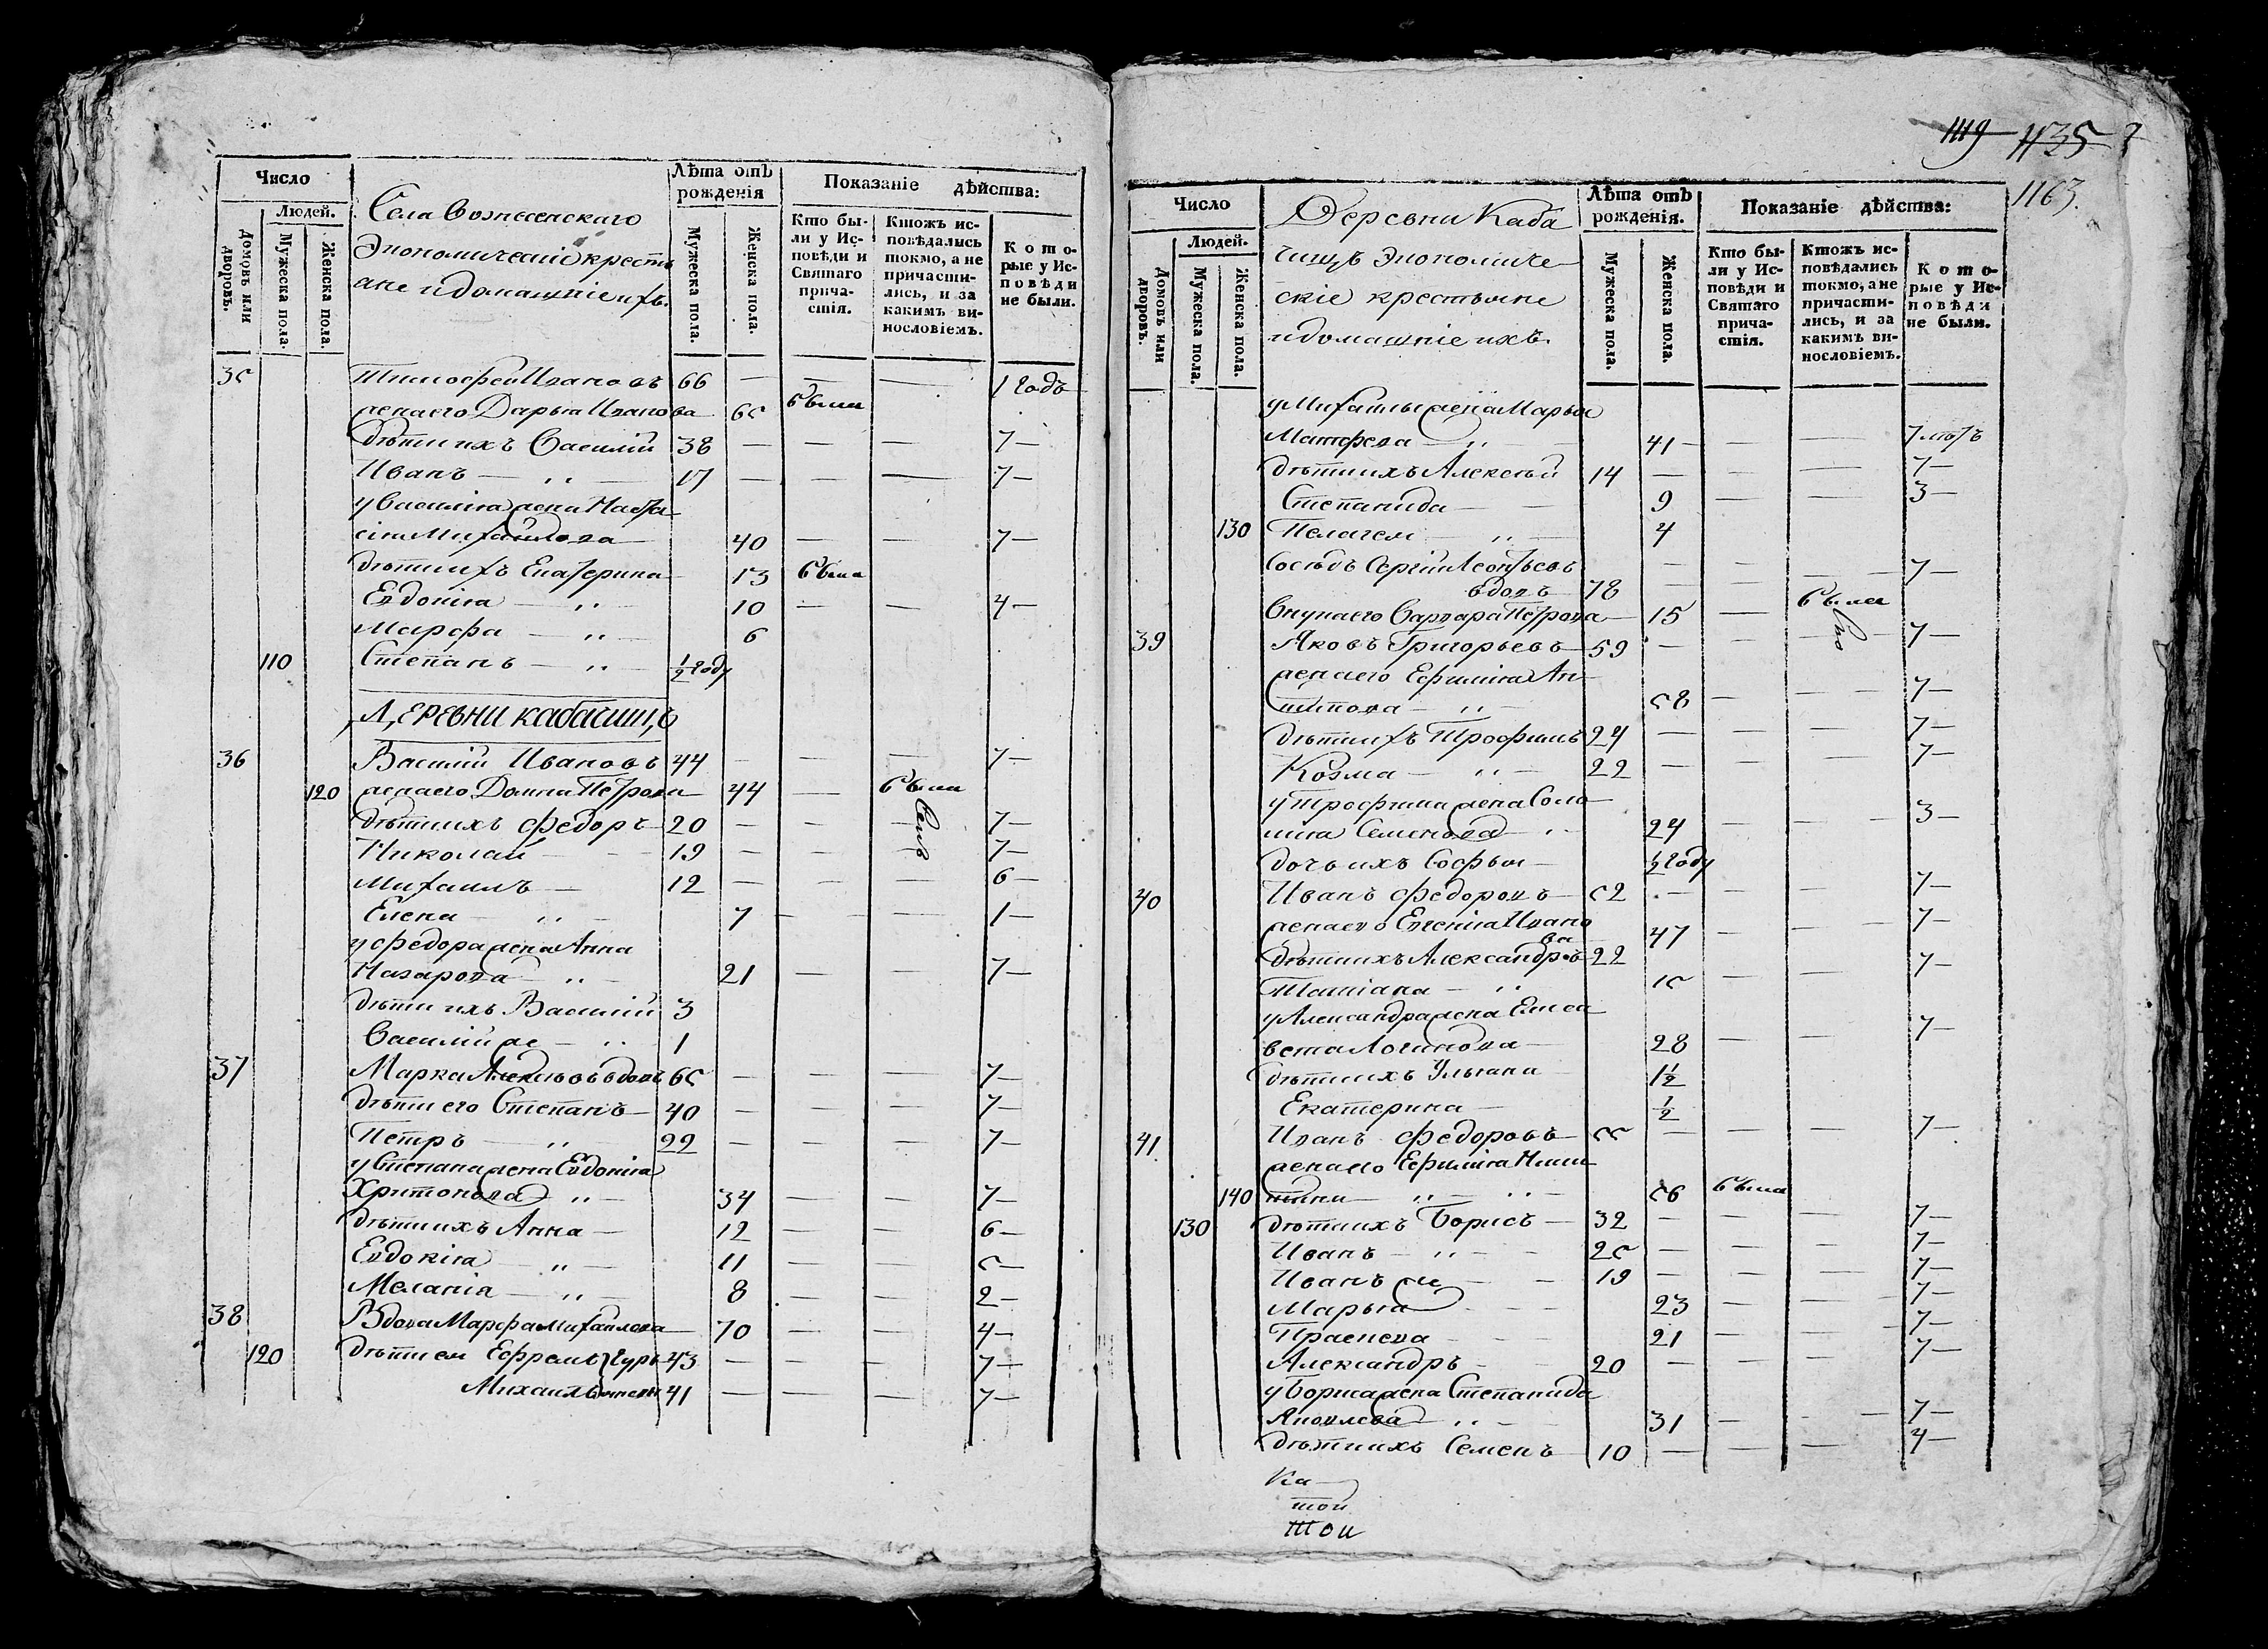 Число
Людей.
Домовъ или дворовъ.
Мужеска пола.
Женска пола.
Села Вознесенскаго
Экономическіе кресть
ане и домашніе ихъ.
Лѣта отъ рожденія
Мужеска пола.
Женска пола.
Показаніе дѣйства:
Кто бы-
ли у Ис-
повѣди и
Святаго
прича-
стія.
Ктожъ ис-
повѣдались
токмо, а не
причасти-
лись, и за
какимъ ви-
нословіемъ.
К о т о-
рые у Ис-
п о в ѣ д и
не были.
35 Тимофей Ивановъ 66 — — — 1 годъ
жена его Дарья Иванова 65 была
дѣти ихъ Василій 38 — — — 7 —
Иванъ — „ — 17 — — — 7 —
у Василія жена Наста
сія Михайлова 40 — — 7 —
дѣти ихъ Екатерина 13 была
Евдокія — „ — 10 — — 4 —
Марфа — „ — 6
110 Степанъ — „ — ½ году
ДЕРЕВНИ Кабачищъ
36 Василій Ивановъ 44 — — — 7 —
120 жена его Домна Петрова 44 — была
дѣти ихъ Федоръ 20 — — — 7 —
Николай 19 — — — 7 —
Михаилъ — 12 — — — 6 —
Елена — „ — 7 — — 1 —
у Федора жена Анна
Назарова — „ — 21 — — 7 —
дѣти ихъ Василій 3
Василій же — „ 1
37 Марка Алексѣевъ вдовъ 65 — — — 7 —
дѣти его Степанъ — 40 — — — 7 —
Петръ — „ — 22 — — — 7 —
у Степана жена Евдокія
Харитонова — „ — 34 — — 7 —
дѣти ихъ Анна — 12 — — 6 —
Евдокія — „ — 11 — — 5 —
Меланія — „ — 8 — — 2 —
38 Вдова Марфа Михайлова 70 — — 4 —
120 дѣти ея Ефремъ 43 — — — 7 —
Михаилъ 41 — — — 7 —
1119 1135
1163.
Число
Людей.
Домовъ или дворовъ.
Мужеска пола.
Женска пола.
Деревни Каба
чищъ Экономиче
скіе крестьяне
и домашніе ихъ.
Лѣта отъ рожденія.
Мужеска пола.
Женска пола.
Показаніе дѣйства:
Кто бы-
ли у Ис-
повѣди и
Святаго
прича-
стія.
Ктожъ ис-
повѣдались
токмо, а не
причасти-
лись, и за
какимъ ви-
нословіемъ.
К о т о-
рые у Ис-
п о в ѣ д и
не были.
у Михаилы жена Марья
Матфева — „ — 41 — — — 7 лѣтъ
дѣти ихъ Алексѣй 14 — — — 7 —
Степанида — — 9 — — 3 —
130 Пелагея — „ — 4
Сосѣдъ Сергій Леонтьевъ — — — 7 —
вдовъ 78
Внука его Варвара Петрова 15 — была
39 Яковъ Григорьевъ 59 — — — 7 —
жена его Ефимія Ан
типова — „ — 58 — — 7 —
дѣти ихъ Трофимъ 24 — — — 7 —
Козма — „ — 22 — — — 7 —
у Трофима жена Соло
мія Семенова — 24 — — 3 —
дочь ихъ Софья — ½ году
40 Иванъ Федоровъ — 52 — — — 7 —
жена его Евгенія Ивано
ва 47 — — 7 —
дѣти ихъ Александръ 22
Татіана — „ 15 — — 7 —
у Александра жена Елиса
вета Логинова — 28 — — 7 —
дѣти ихъ Ульяна 1½
Екатерина — ½
41 Иванъ Федоровъ — 55 — — — 7 —
жена его Ефимія Ники
140 тина — „ — „ — 56 была
130 дѣти ихъ Борисъ — 32 — — — 7 —
Иванъ — „ — 25 — — — 7 —
Иванъ же — — 19 — — — 7 —
Марья — — 23 — — 7 —
Праскева — — 21 — — 7 —
Александръ — 20 — — — 7 —
у Бориса жена Степанида
Яковлева — „ — 31 — — 7 —
дѣти ихъ Семенъ 10 — — — 4 —
Ка
той
той